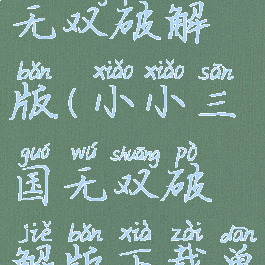 无双破解
bǎn xiǎo xiǎo sān
版(小小三
guó wú shuāng pò
国无双破
jiě bǎn xià zài dān
解版下载单